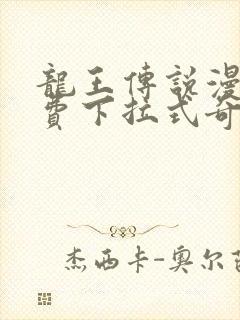 龍王傳說漫
費下拉式奇
杰西卡-奧尔芭